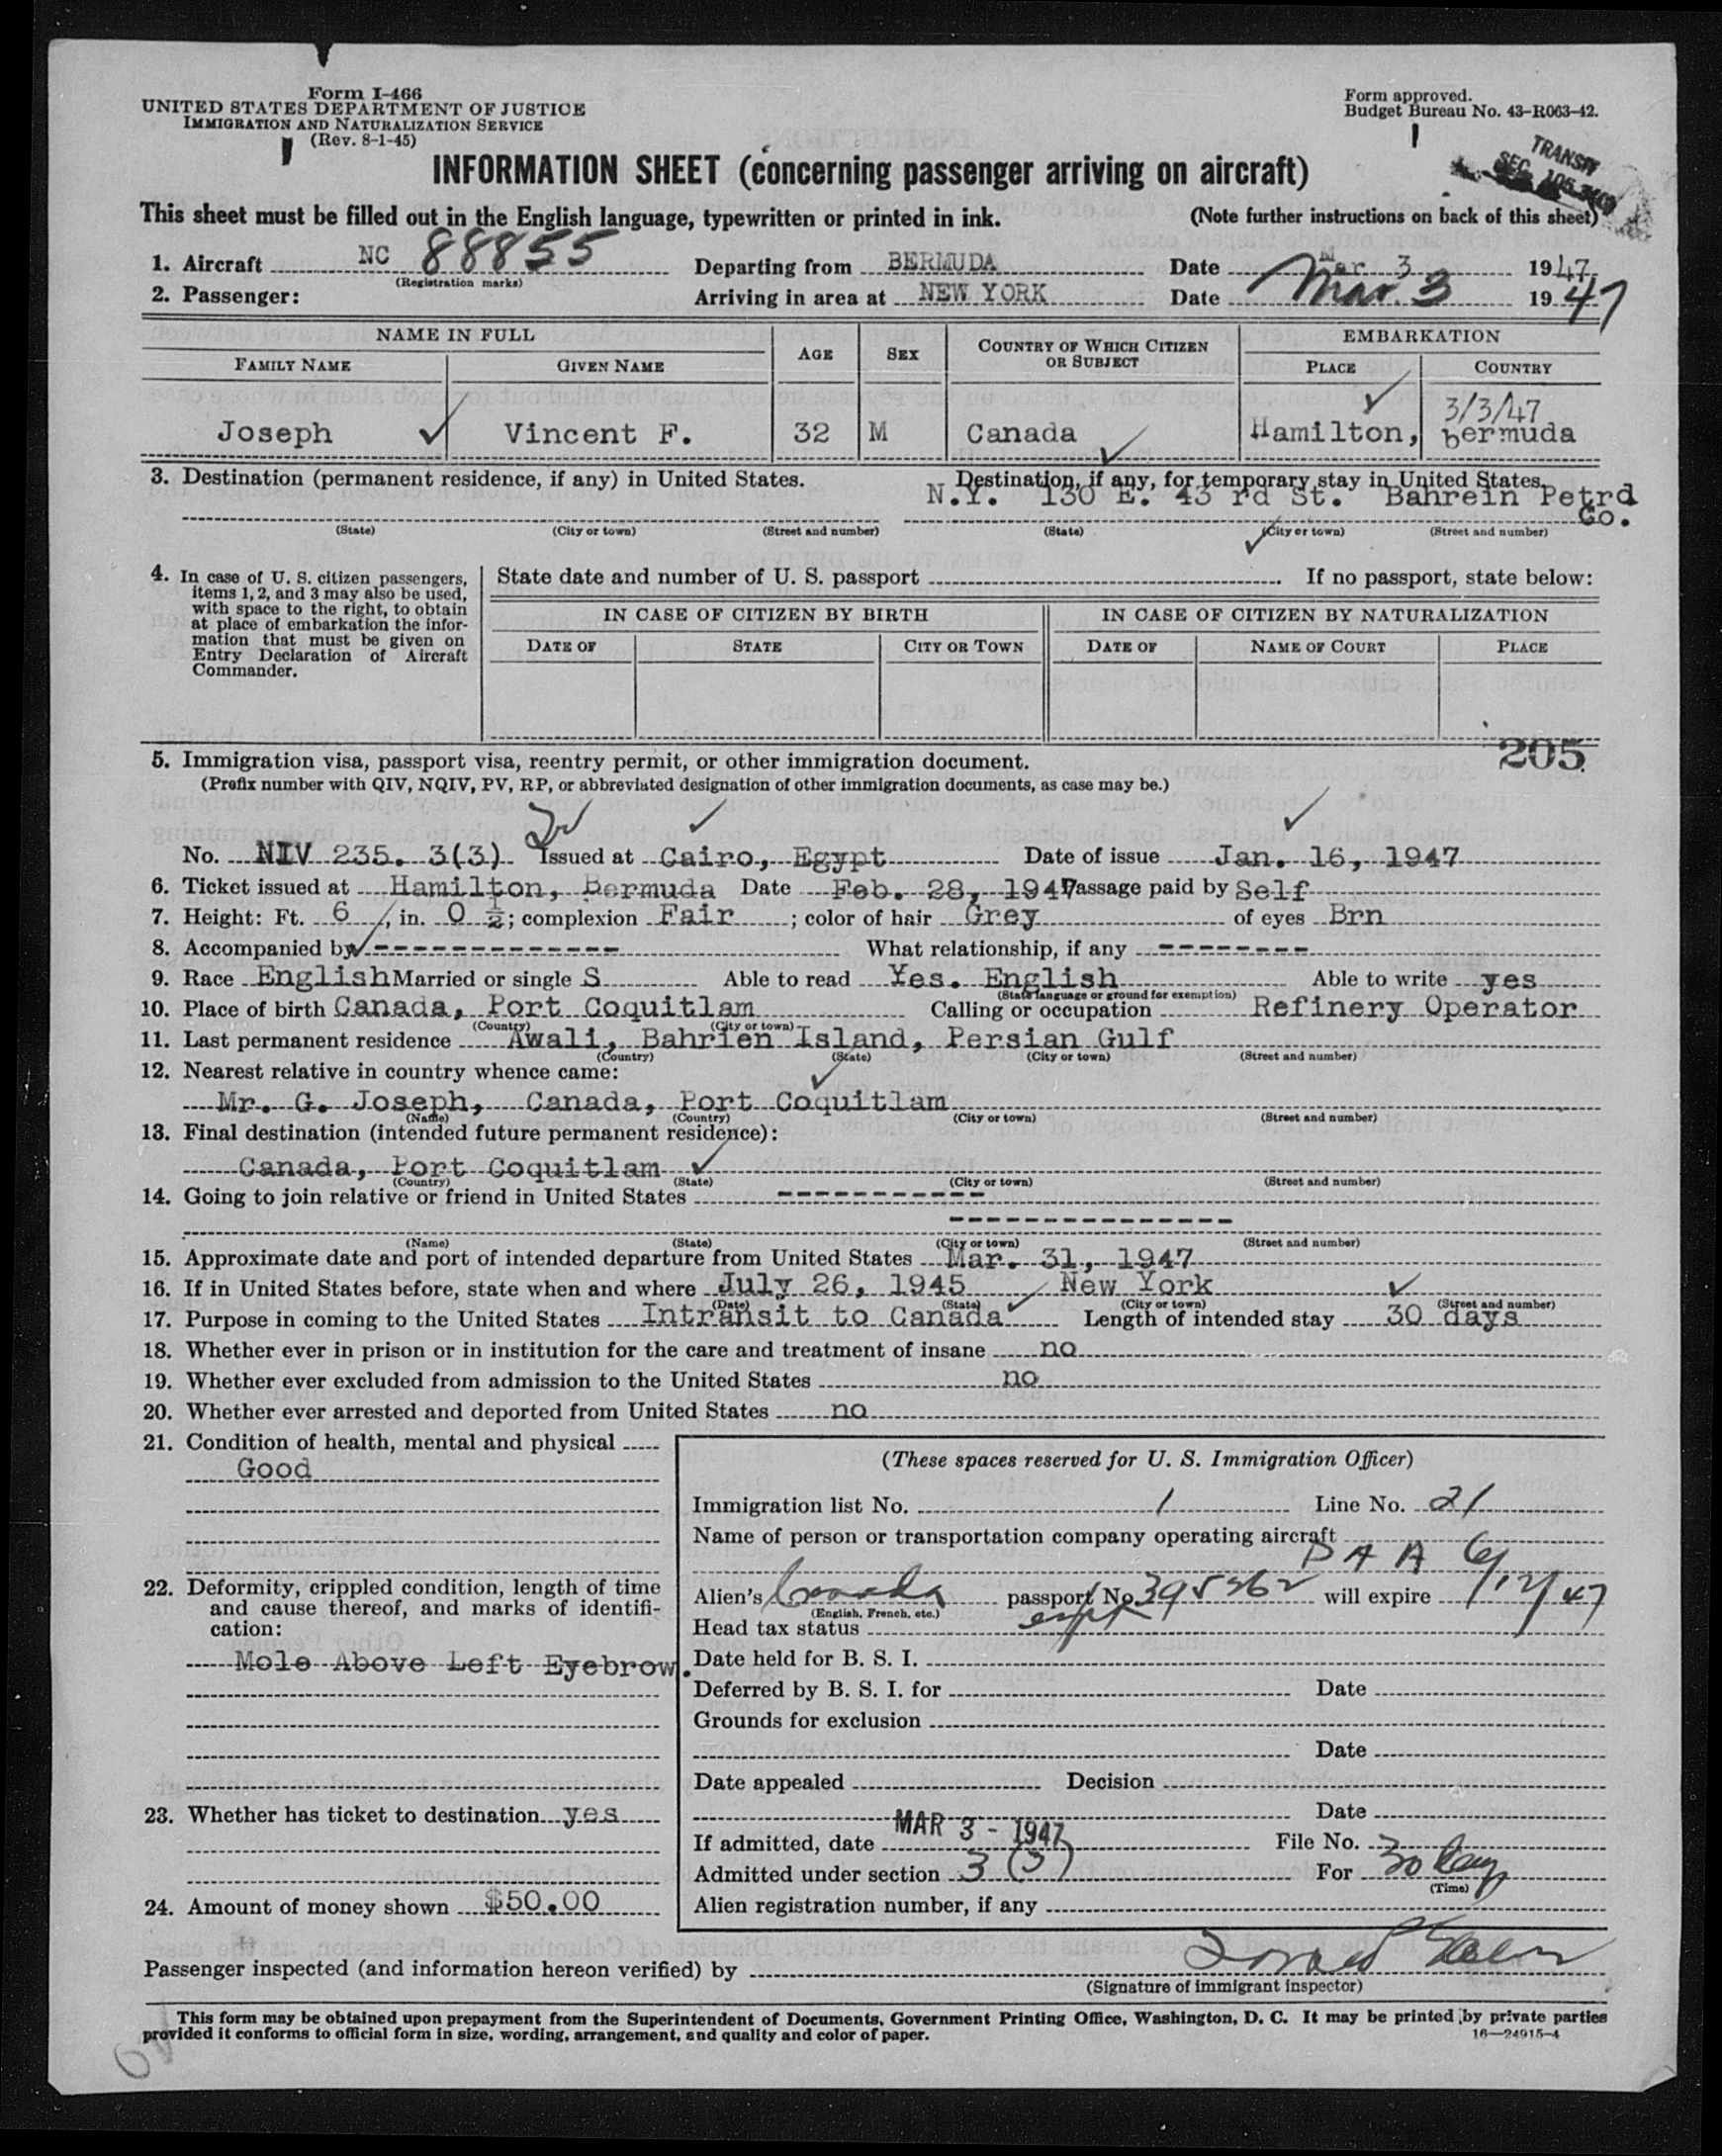 Form I-466
UNITED STATES DEPARTMENT OF JUSTICE
IMMIGRATION AND NATURALIZATION SERVICE
(Rev. 8-1-45)
Form approved.
Budget Bureau No. 43-R063-42.
TRANSIT
INFORMATION SHEET (concerning passenger arriving on aircraft)
This sheet must be filled out in the English language, typewritten or printed in ink. (Note further instructions on back of this sheet)
1. Aircraft NC 88855 Departing from BERMUDA Date Mar 3 1947
(Registration marks)
2. Passenger: Arriving in area at NEW YORK Date Mar. 3 1947
NAME IN FULL AGE SEX COUNTRY OF WHICH CITIZEN OR SUBJECT EMBARKATION
FAMILY NAME GIVEN NAME PLACE COUNTRY
3/3/47
Joseph Vincent F. 32 M Canada Hamilton, bermuda
3. Destination (permanent residence, if any) in United States. Destination, if any, for temporary stay in United States.
N.Y. 130 E. 43 rd St. Bahrein Petrd
Co.
(State) (City or town) (Street and number) (State) (City or town) (Street and number)
4. In case of U. S. citizen passengers, items 1, 2, and 3 may also be used, with space to the right, to obtain at place of embarkation the information that must be given on Entry Declaration of Aircraft Commander.
State date and number of U. S. passport If no passport, state below:
IN CASE OF CITIZEN BY BIRTH IN CASE OF CITIZEN BY NATURALIZATION
DATE OF STATE CITY OR TOWN DATE OF NAME OF COURT PLACE
205
5. Immigration visa, passport visa, reentry permit, or other immigration document.
(Prefix number with QIV, NQIV, PV, RP, or abbreviated designation of other immigration documents, as case may be.)
No. NIV 235. 3(3) Issued at Cairo, Egypt Date of issue Jan. 16, 1947
6. Ticket issued at Hamilton, Bermuda Date Feb. 28, 1947 Passage paid by Self
7. Height: Ft. 6, in. 0 1/2; complexion Fair; color of hair Grey of eyes Brn
8. Accompanied by ------------- What relationship, if any --------
9. Race English Married or single S Able to read Yes. English Able to write yes
(State language or ground for exemption)
10. Place of birth Canada, Port Coquitlam Calling or occupation Refinery Operator
(Country) (City or town)
11. Last permanent residence Awali, Bahrien Island, Persian Gulf
(Country) (State) (City or town) (Street and number)
12. Nearest relative in country whence came:
Mr. G. Joseph, Canada, Port Coquitlam
(Name) (Country) (City or town) (Street and number)
13. Final destination (intended future permanent residence):
Canada, Port Coquitlam
(Country) (State) (City or town) (Street and number)
14. Going to join relative or friend in United States -----------
---------------
(Name) (State) (City or town) (Street and number)
15. Approximate date and port of intended departure from United States Mar. 31, 1947
16. If in United States before, state when and where July 26, 1945 New York
(Date) (State) (City or town) (Street and number)
17. Purpose in coming to the United States Intransit to Canada Length of intended stay 30 days
18. Whether ever in prison or in institution for the care and treatment of insane no
19. Whether ever excluded from admission to the United States no
20. Whether ever arrested and deported from United States no
21. Condition of health, mental and physical
Good
22. Deformity, crippled condition, length of time and cause thereof, and marks of identification:
Mole Above Left Eyebrow.
23. Whether has ticket to destination yes
24. Amount of money shown $50.00
(These spaces reserved for U. S. Immigration Officer)
Immigration list No. 1 Line No. 21
Name of person or transportation company operating aircraft
P A A
Alien's Canada passport No. 395262 will expire 6/12/47
(English, French, etc.)
Head tax status
Date held for B. S. I.
Deferred by B. S. I. for Date
Grounds for exclusion
Date
Date appealed Decision
Date
If admitted, date MAR 3 - 1947 File No.
Admitted under section 3 (3) For 30 days
(Time)
Alien registration number, if any
Passenger inspected (and information hereon verified) by
(Signature of immigrant inspector)
This form may be obtained upon prepayment from the Superintendent of Documents, Government Printing Office, Washington, D. C. It may be printed by private parties
provided it conforms to official form in size, wording, arrangement, and quality and color of paper.
16—24915-4